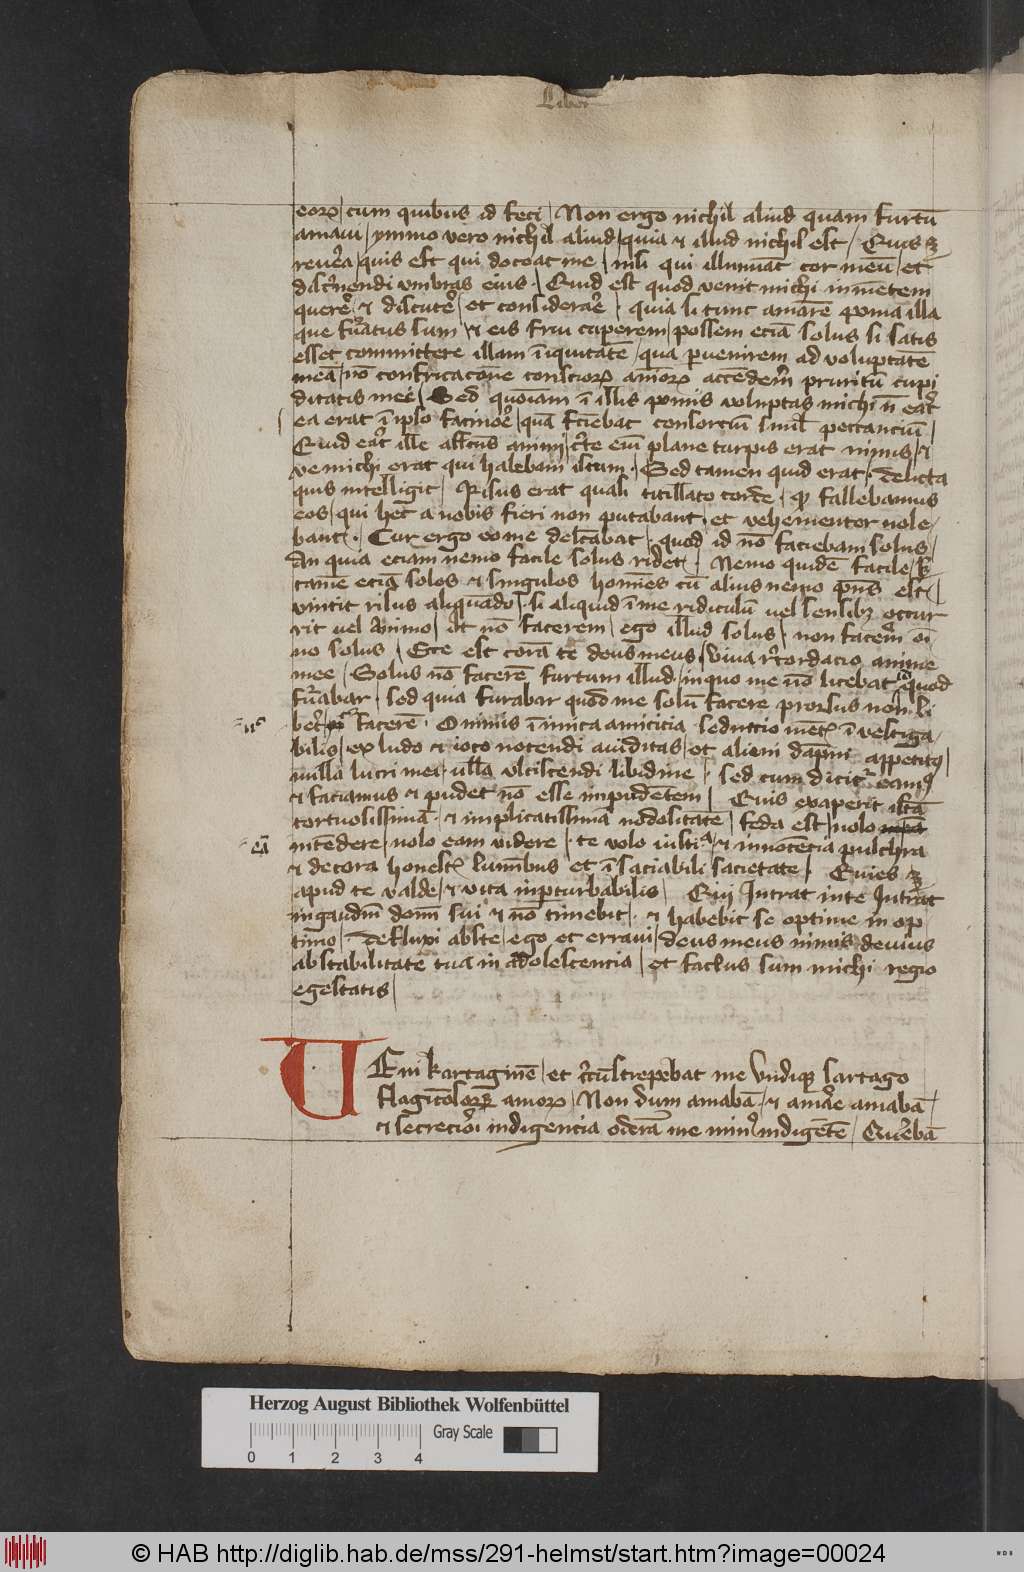 Liber
eorꝝ cum quibus id feci / Non ergo nichil aliud quam furtū
amaui / ymmo vero nichil aliud / quia ⁊ illud nichil est / Quis ꝫ
reuēa / quis est qui doceat me / nisi qui illumīat cor meū / et
disc̄nendi vmbras eius . Quid est quod venit michi in mētem
querē / ⁊ discutē / et considerare / quia si tunc amarē poma illa
que furatus sum / ⁊ eis frui cuperem / possem eciā solus si satis
esset committere illam īiquitatē / qua peruenirem ad voluptatē
meā / nō confricacōne consciorꝝ amorꝝ accēdem̄ pruritū cupi
ditatis mee / Sed quoniam ī illis pomis voluptas michi n̄ eāt
ea erat ī ipso facinoē / quā faciebat consorciū simil peccanciū /
Quid eāt ille affectus animi / c̄te eni plane turpis erat nimis / ⁊
ve michi erat qui habebam istum . Sed tamen quid erat . delicta
quis intelligit / Risus erat quasi titillato corde / qꝫ fallebamus
eos / qui hec a nobis fieri non putabant . et vehementer nole
bant . Cur ergo eo me delc̄abat . quod id nō faciebam solus /
An quia eciam nemo facile solus ridet . Nemo quidē facile / sꝫ
tamē eciā solos ⁊ singulos homīes cū alius nemo p̄ns est /
vincit risus aliquādo / si aliquid ī me ridiculū vel sensibꝫ occur
rit vel animo / At nō facerem / ego illud solus / non facem̄ oī
no solus / Ecce est corā te deus meus / viua rc̄ordacio anime
mee / Solus nō facerē furtum illud / in quo me nō licebat id quod
fūabar / sed quia furabar quod me solū facere prorsus non li
bet̄ facere . O nimis īimica amicicia seductio mentꝭ ī vestiga
bilis / ex ludo ⁊ ioco nocendi auiditas / et alieni dāpni appetitꝰ
nulla lucri mei . ulla vlciscendi libidine . sed cum dicit̄ eamꝰ
⁊ faciamus ⁊ pudet nō esse impudētem / Quis exaperit istā
tortuosissimā . ⁊ implicatissimā nodositatē / feda est / nolo
intēdere / nolo eam videre . te volo iusticia ⁊ innocēcia pulchra
⁊ decora honestꝭ lumībus et ī saciabili sacietate . Quies ꝫ
apud te valde / ⁊ vita inperturbabilis / Qui Intrat in te Intrat
in gaudiū domī sui ⁊ nō timebit . ⁊ habebit se optime in op
timo . defluxi abs te / ego et erraui / deus meus nimis deuius
ab stabilitate tua in adolescencia / et factus sum michi regio
egestatis /
UEni kartaginē / et c̄cūstrepebat me vndiqꝫ sartago
flagiciosorꝝ amorꝝ / Non dum amabā . ⁊ amāe amabā
⁊ secrecioī indigencia oderā me minꝰ indigētē / Quēebā
eā
Herzog August Bibliothek Wolfenbüttel
0 1 2 3 4 Gray Scale
© HAB http://diglib.hab.de/mss/291-helmst/start.htm?image=00024